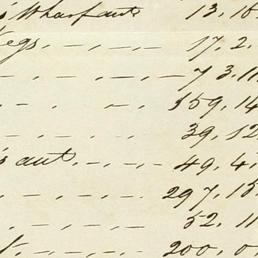 Wharfauts 13. 18
egs. - , - , - 17. 2.
- , - , - , - 73. 11
- , - , - 159. 14
- , - , - , - 39. 12
s aut. - , - , - 49. 4.
- , - , - , - 297. 15
- , - , - , - 52. 11
- , - , - 200. 0